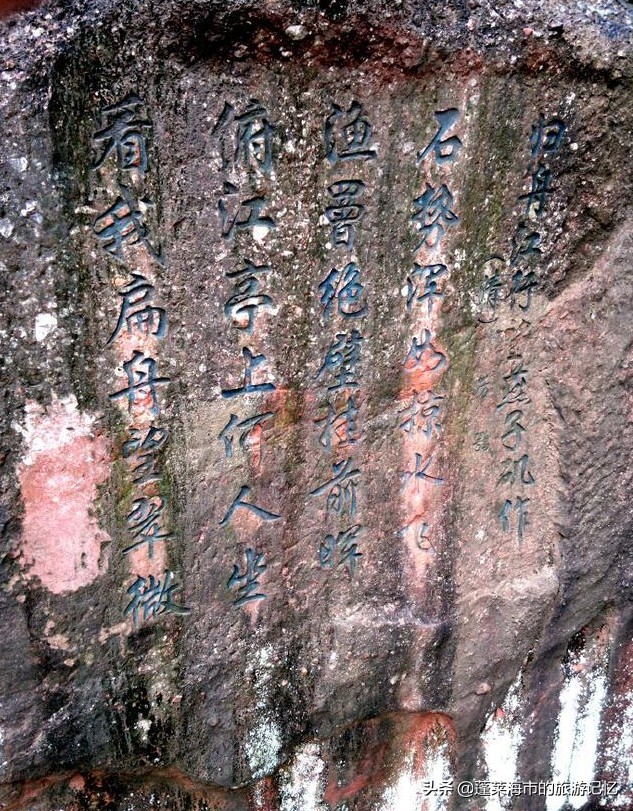 归舟江行望燕子矶作
（清）
石势浑如掠水飞
渔罾绝壁挂前晖
俯江亭上何人坐
看我扁舟望翠微
头条 @蓬莱海市的旅游记忆